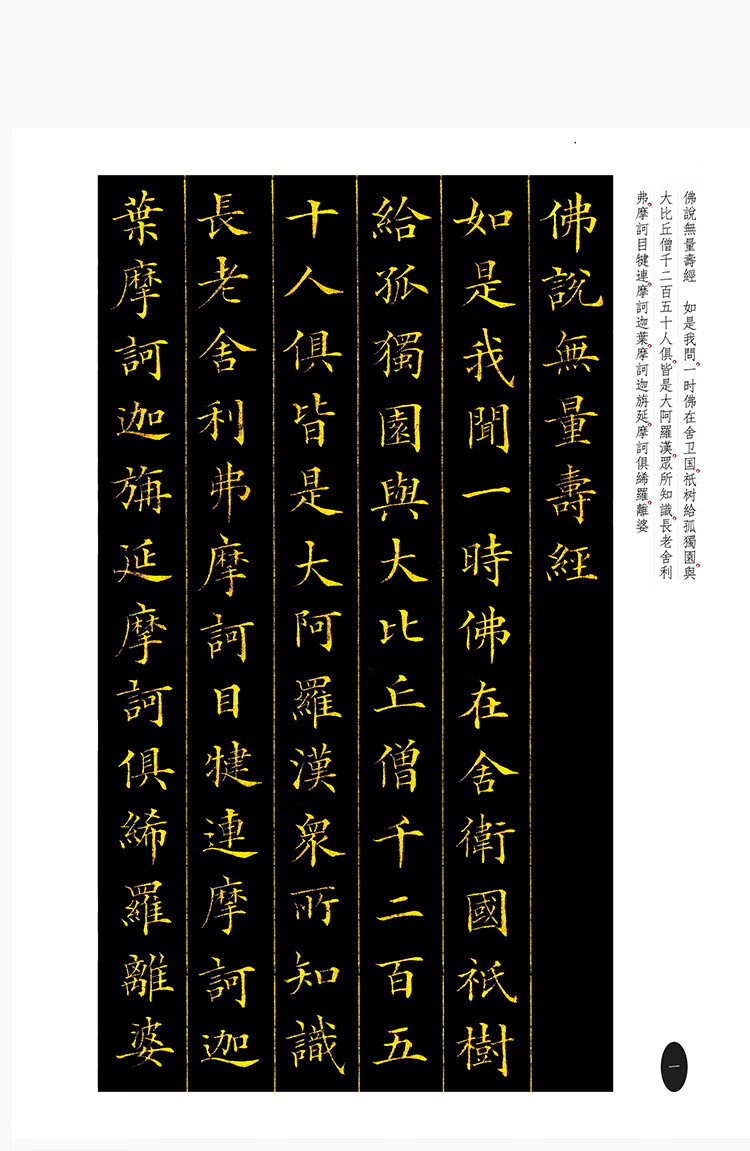 佛說無量壽經　如是我問。一时佛在舍卫国。祇树給孤獨園。與
大比丘僧千二百五十人俱。皆是大阿羅漢。眾所知識。長老舍利
弗。摩訶目犍連。摩訶迦葉。摩訶迦旃延。摩訶俱絺羅。離婆
佛說無量壽經
如是我聞一時佛在舍衛國祇樹
給孤獨園與大比丘僧千二百五
十人俱皆是大阿羅漢衆所知識
長老舍利弗摩訶目犍連摩訶迦
葉摩訶迦旃延摩訶俱絺羅離婆
一